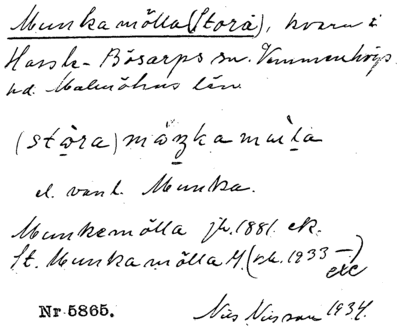 Munkamölla (Stora), kvarn i
Hassle-Bösarps sn. Vemmenhögs
hd. Malmöhus län
(stära) mäzka maila
el. vanl. Munka.
Munkemölla jb. 1881. ek.
St. Munkamölla H. (rk. 1933 –) etc
Nr 5865.
Nils Nilsson 1934.